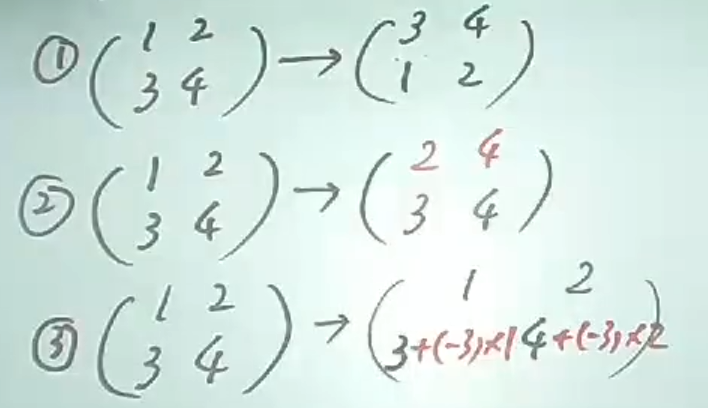 ① ( 1 2 → ( 3 4
3 4 ) 1 2 )
② ( 1 2 → ( 2 4
3 4 ) 3 4 )
③ ( 1 2 → ( 1 2
3 4 ) 3+(-3)×1 4+(-3)×2 )